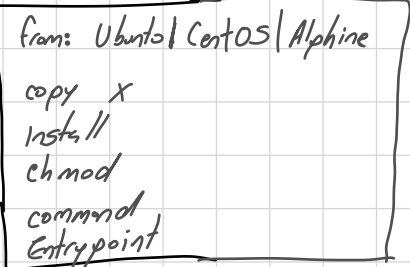 from: Ubunto | CentOS | Alphine
copy x
Install
chmod
commend
Entrypoint